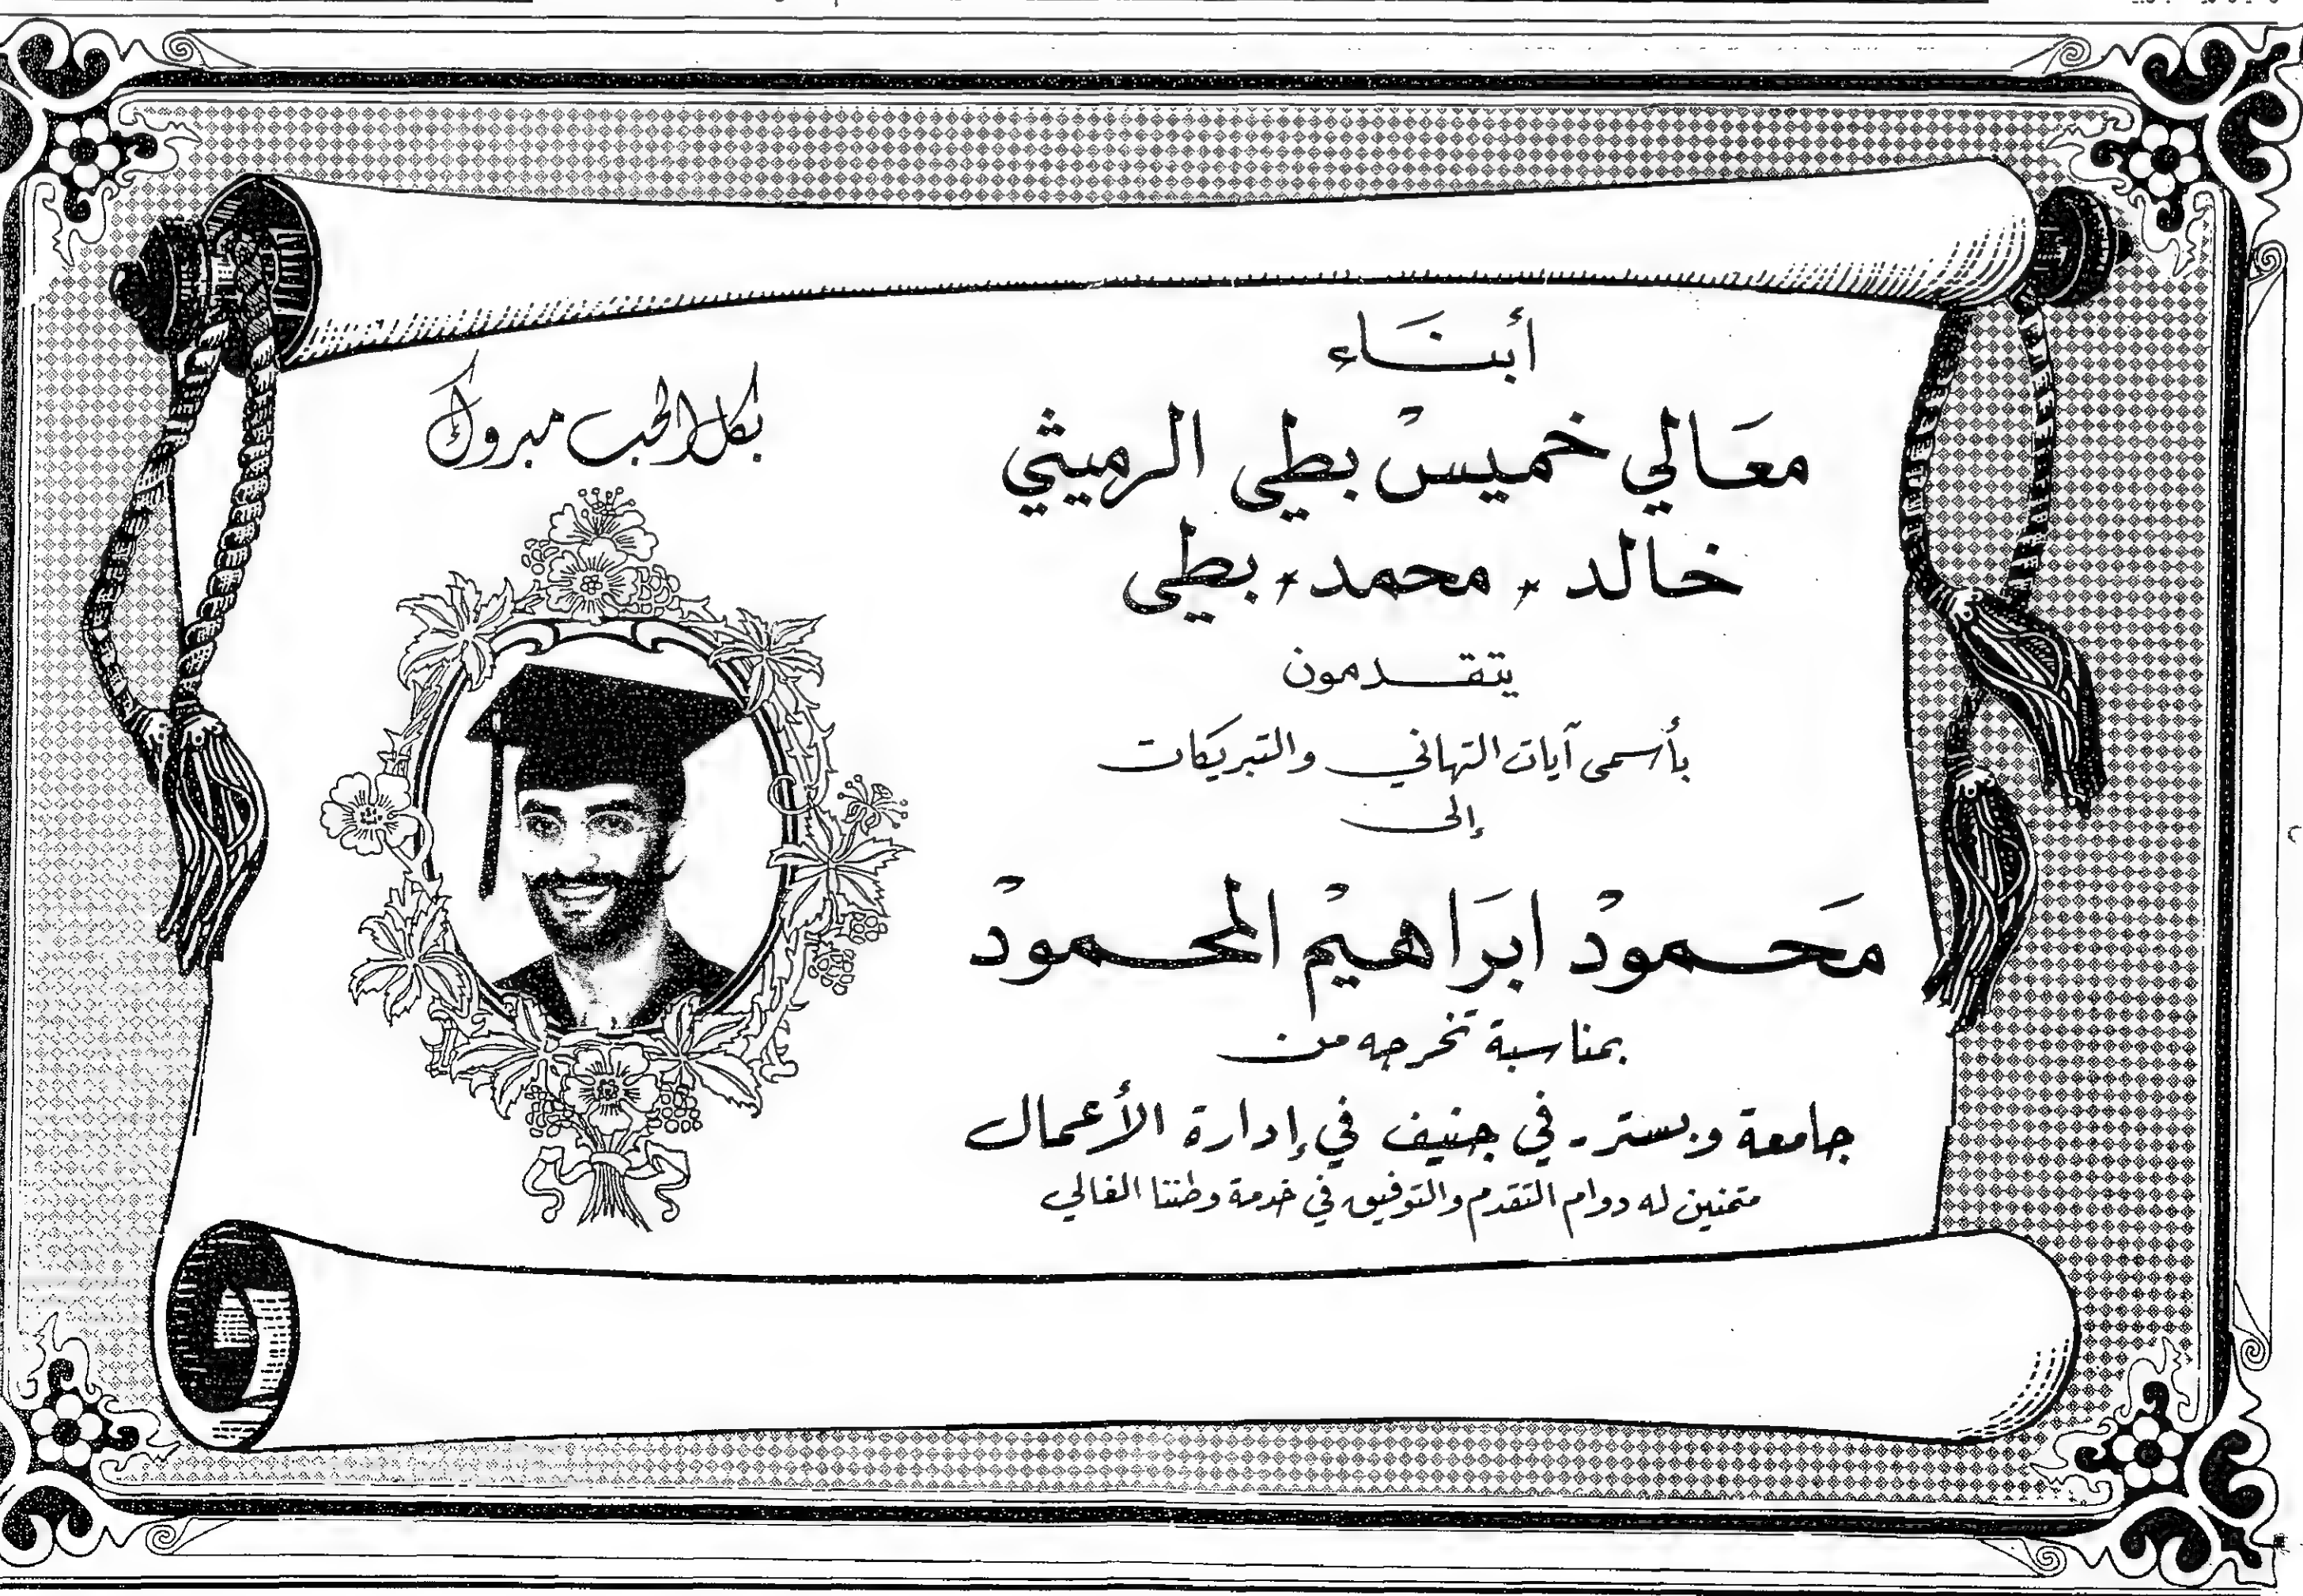 أبناء
معالي خميس بطي الرميثي
خالد * محمد * بطي
يتقدمون
بأسمى آيات التهاني والتبريكات
إلى
محمود ابراهيم المحمود
بمناسبة تخرجه من
جامعة وبستر - في جنيف في إدارة الأعمال
متمنين له دوام التقدم والتوفيق في خدمة وطننا الغالي
بكل الحب مبروك